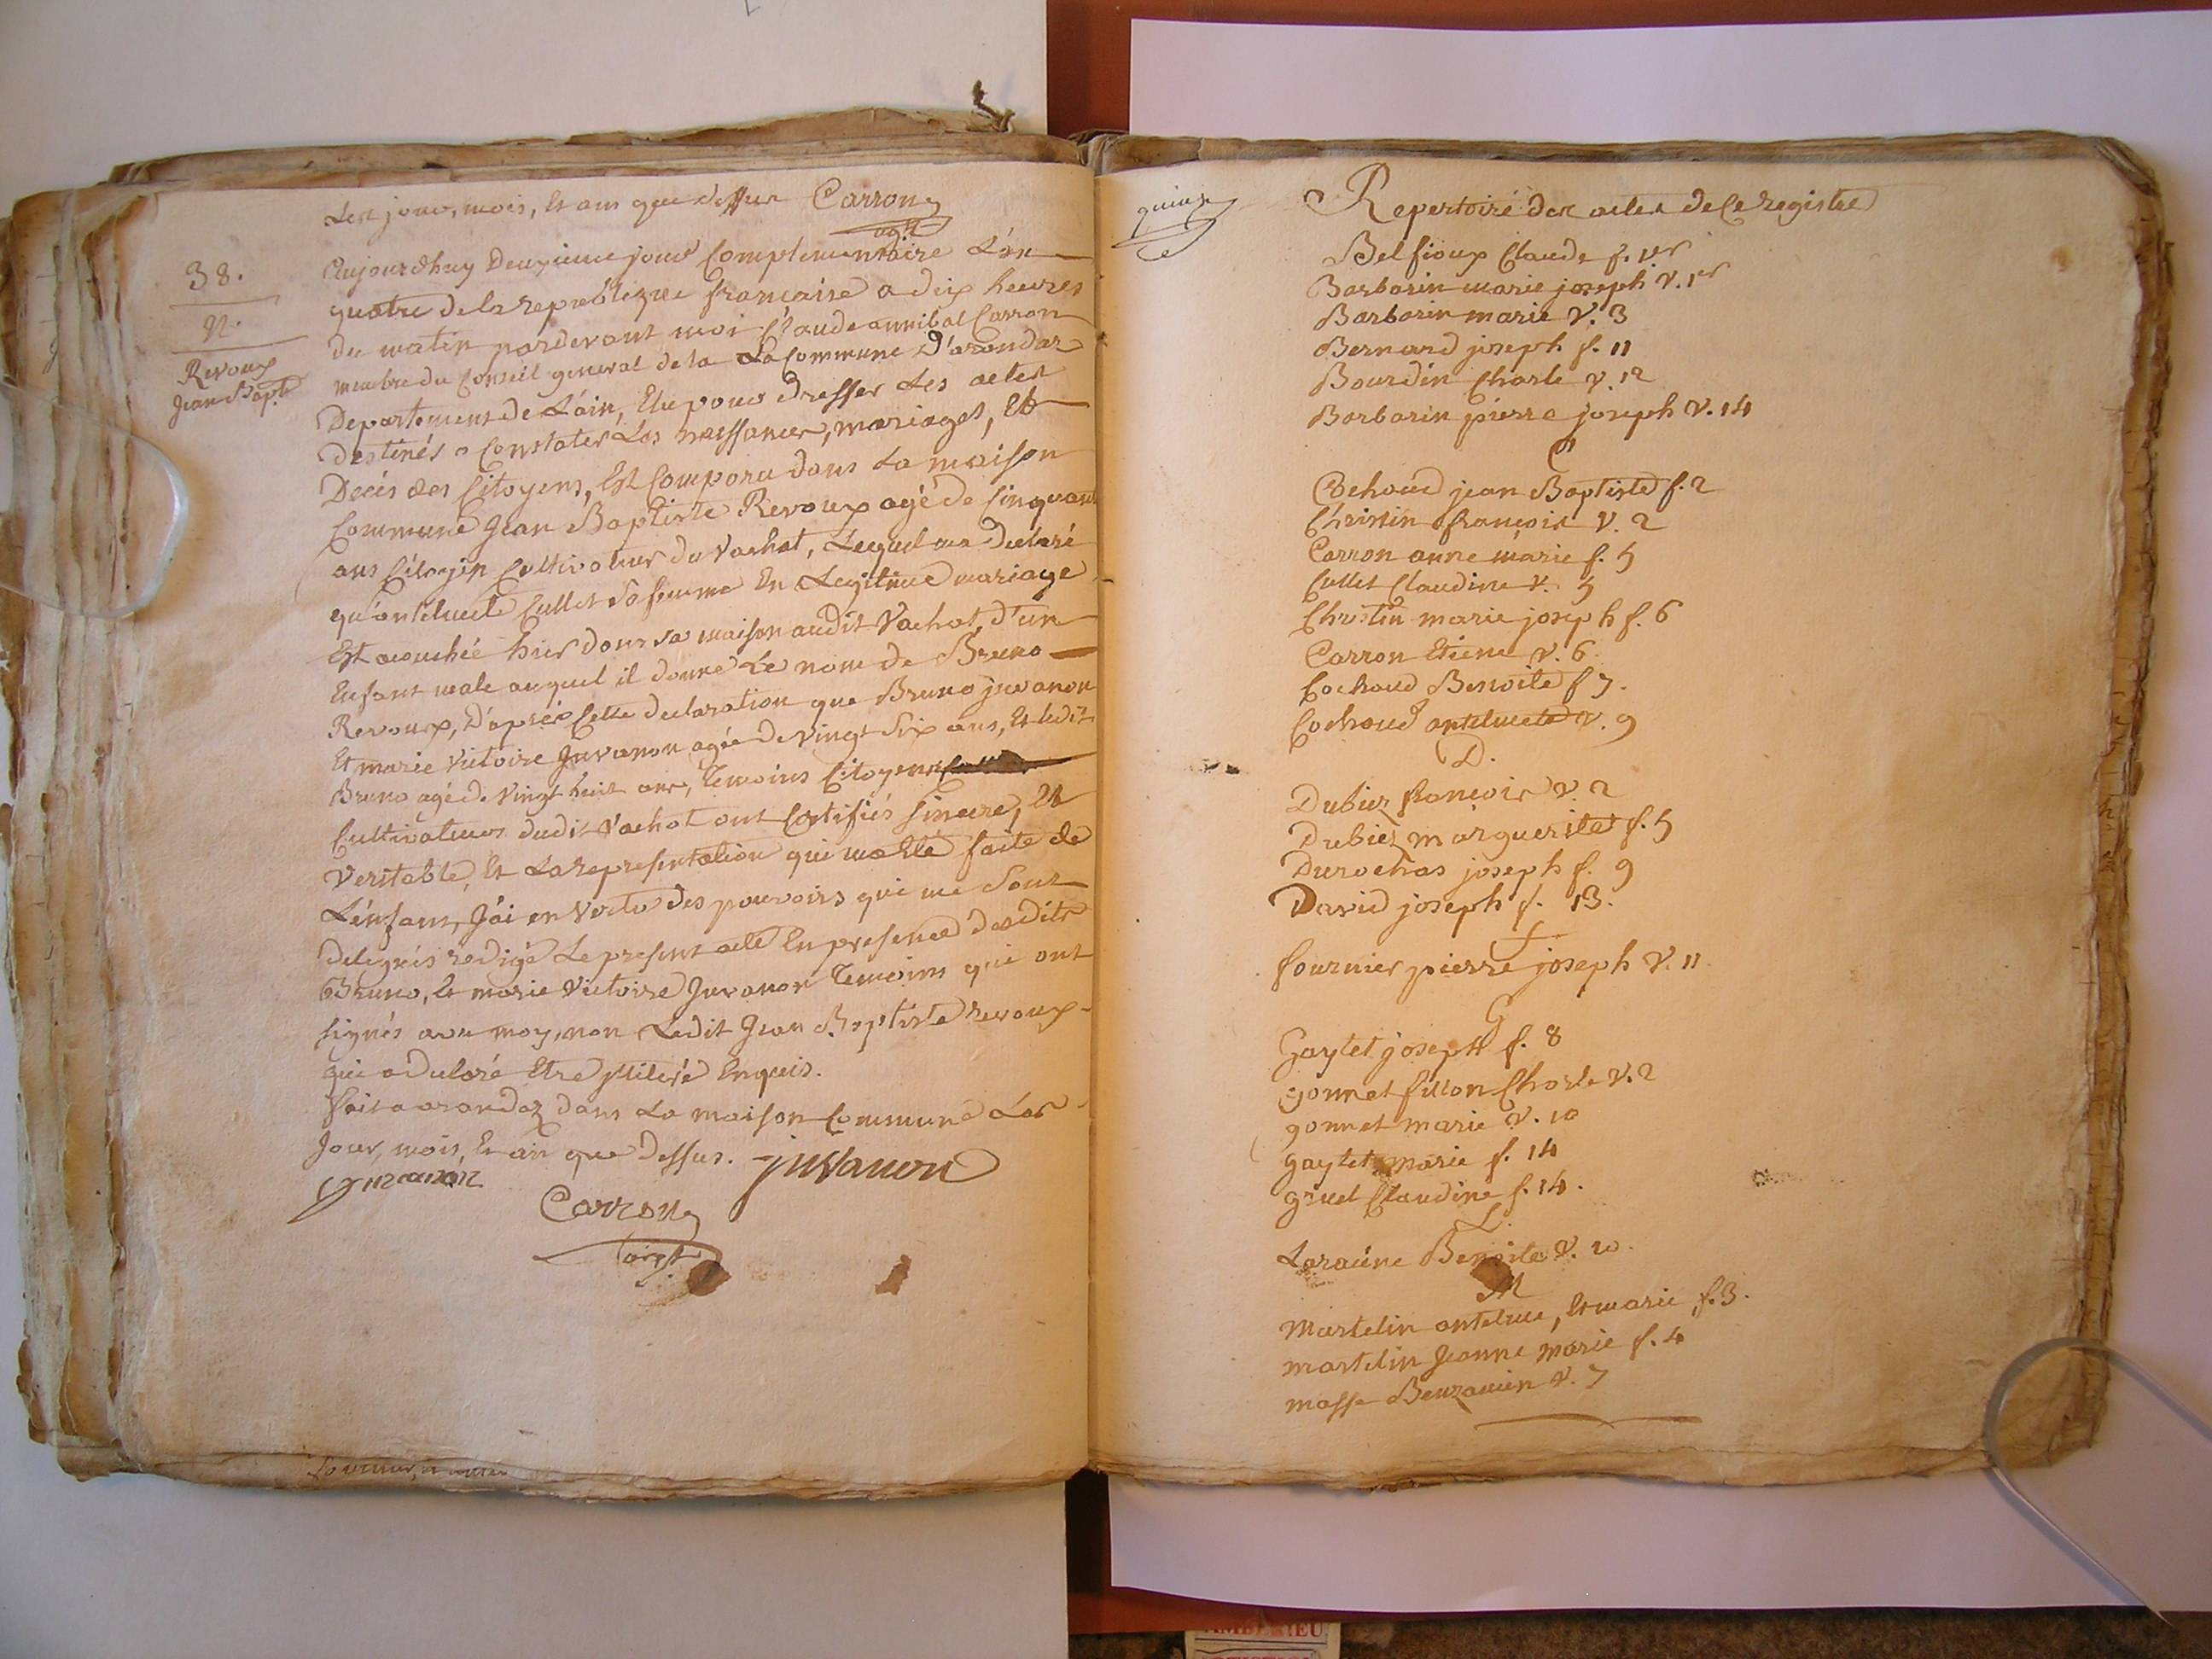 Les jour, mois, Et an que dessus Carron
agt
38.
N.
Revoux
Jean Bapte
Aujourdhuy Deuzieme jour Complementaire L'an
quatre de la republique française a dix heures
du matin pardevant moi Claude annibal Carron
membre du Conseil general de la La Commune D'arandaz
Departement de L'ain, Elu pour dresser Les actes
Destinés a Constater Les naissances, mariages, Et
Decés des Citoyens, Est Comparu dans La maison
Commune Jean Baptiste Revoux agé de Cinquante
ans Citoyen Cultivateur du Vachat, Lequel ma declaré
qu'antelmete Cullet Sa femme En Legitime mariage
Est acouchée hier dans sa maison audit Vachat, d'un
Enfant male auquel il donne Le nom de Bruno
Revoux, D'aprés Cette declaration que Bruno juvanon
Et marie Victoire Juvanon agée de vingt Six ans, Et ledit
Bruno agé de Vingt huit ans, Temoins Citoyens
Cultivateurs dudit Vachat ont Certifiés Sincere, Et
Veritable, Et La representation qui ma Eté faite de
L'enfant, J'ai en Vertu des pouvoirs qui me Sont
delegués redigé Le present acte En presence desdits
Bruno, Et marie Victoire Juvanon Temoins qui ont
signés avec moy, non Ledit Jean Baptiste Revoux
qui a declaré Etre jlliteré Enquis.
fait a arandaz dans La maison Commune Les
Jour, mois, Et an que Dessus. juvanon
Juvanon
Carron
agt
quinze
Repertoire des actes de Ce registre
Belfioux Claude f. 1er
Barbarin marie joseph v. 1er
Barbarin marie v. 3
Bernard joseph f. 11
Bourdin Charle v. 12
Barbarin pierre joseph v. 14
C
Cochoud jean Baptiste f. 2
Christin françois v. 2
Carron anne marie f. 5
Cullet Claudine v. 5
Christin marie joseph f. 6
Carron Etiene v. 6.
Cochoud Benoite f 7.
Cochoud antelmete v. 9
D.
Dubiez françois v. 2
Dubiez marguerite f. 5
Durochas joseph f. 9
David joseph f. 13.
f
fournier pierre joseph v. 11
G
Gaytet joseph f. 8
gonnet fillon Charle v. 2
gonnet marie v. 10
gaytet marie f. 14
gruet Claudine f. 14.
L.
Benoite v. 10.
M
Martelin antelme, Et marie f. 3.
martelin Jeanne marie f. 4
masse v. 7